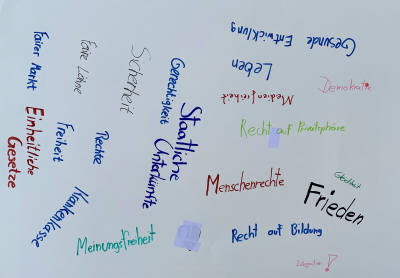 Gesunde Entwicklung
Leben
Medienfreiheit
Demokratie
Recht auf Privatsphäre
Menschenrechte
Gleichheit
Frieden
Recht auf Bildung
Fairer Markt
Faire Löhne
Sicherheit
Gerechtigkeit
Staatliche
Unterkünfte
Einheitliche
Gesetze
Freiheit
Rechte
Krankenkasse
Meinungsfreiheit